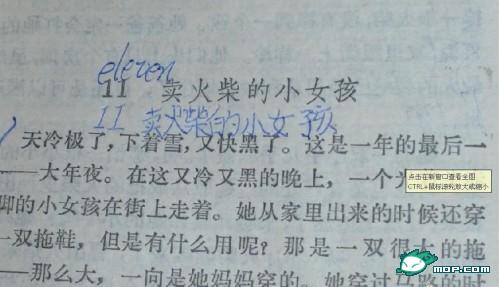 一个钱。她爸爸一定会打她的
eleven
11 卖火柴的小女孩
11 卖火柴的小女孩
天冷极了，下着雪，又快黑了。这是一年的最后一
——大年夜。在这又冷又黑的晚上，一个
点击在新窗口查看全图
CTRL+鼠标滚轮放大或缩小
脚的小女孩在街上走着。她从家里出来的时候还穿
一双拖鞋，但是有什么用呢？那是一双很大的拖
——那么大，一向是她妈妈穿的。她穿过马路的时
mop.com